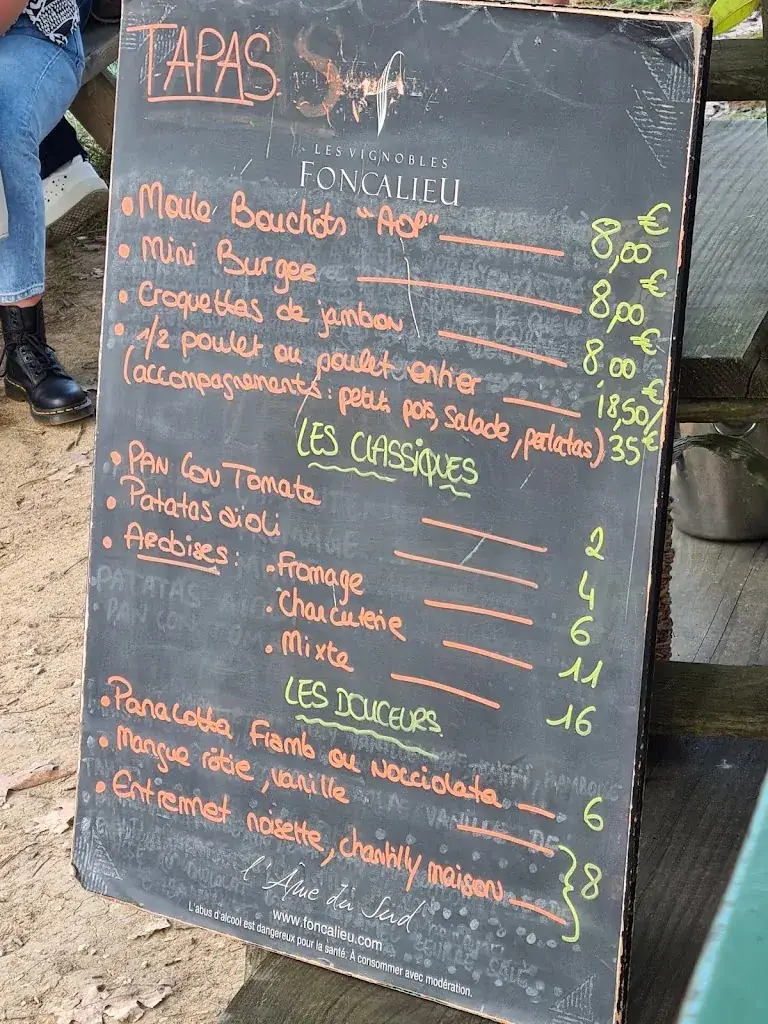 TAPAS
LES VIGNOBLES
FONCALIEU
• Moule Bouchôts "AOP" 8,00 €
• Mini Burger 8,00 €
• Croquettas de jambon 8,00 €
• 1/2 poulet ou poulet entier 18,50/ €
(accompagnements: petits pois, salade, patatas) 35€
LES CLASSIQUES
• PAN CON Tomate 2
• Patatas aïoli 4
• Ardoises: • Fromage 6
• Charcuterie 11
• Mixte 16
LES DOUCEURS
• Panacotta Framb ou Nocciolata 6
• Mangue rôtie, vanille
• Entremet noisette, chantilly maison } 8
l'Âme du Sud
www.foncalieu.com
L'abus d'alcool est dangereux pour la santé. À consommer avec modération.